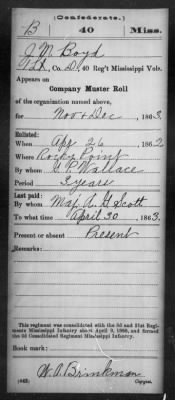 (Confederate.)
B 40 Miss.
J M Boyd
Co. D, 40 Reg't Mississippi Vols.
Appears on
Company Muster Roll
of the organization named above,
for Nov & Dec, 1863.
Enlisted:
When Apr 26, 1862
Where Rocky Point
By whom C. P. Wallace
Period 3 years
Last paid:
By whom Maj. A. G. Scott
To what time April 30, 1863.
Present or absent Present
Remarks:
This regiment was consolidated with the 3d and 31st Regiments
Mississippi Infantry about April 9, 1865, and formed
the 3d Consolidated Regiment Mississippi Infantry.
Book mark:
W. A. Brinkman
(642) Copyist.